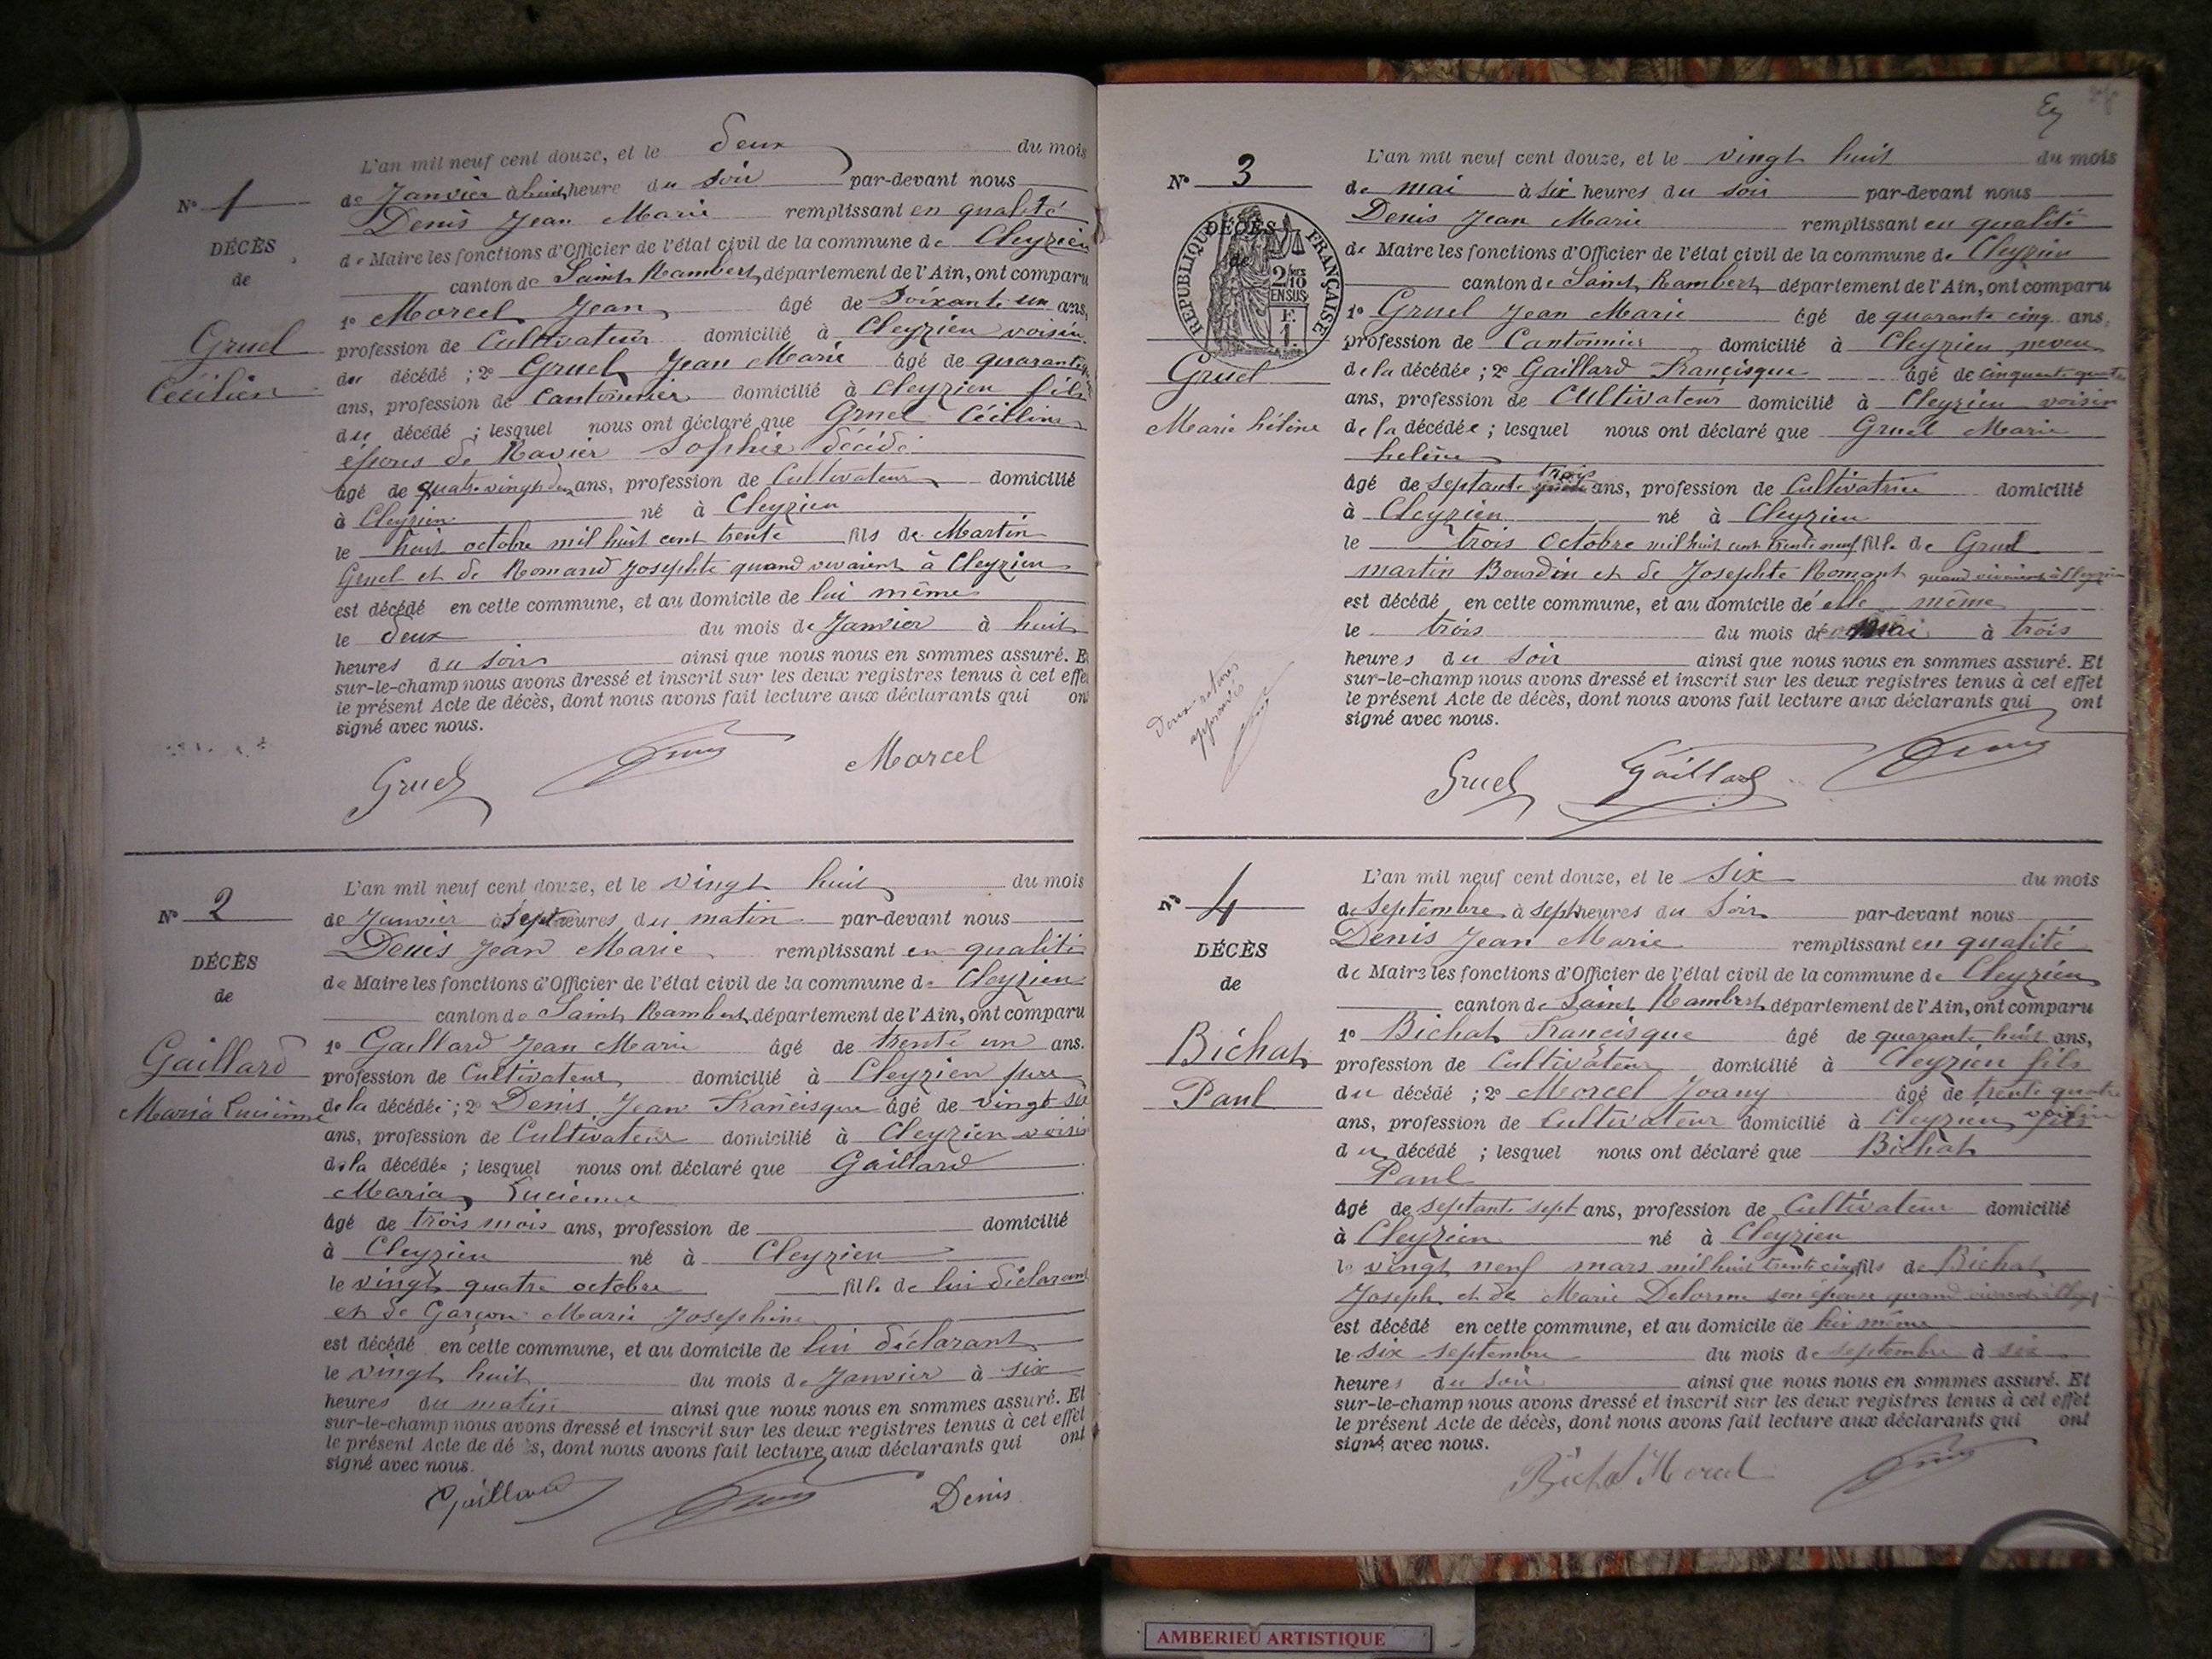 L'an mil neuf cent douze, et le deux du mois
N° 1
de Janvier à huit heure du soir par-devant nous
Denis Jean Marie remplissant en qualité
DÉCÈS
de Maire les fonctions d'Officier de l'état civil de la commune de Cleyzieu
de
canton de Saint Rambert, département de l'Ain, ont comparu
1° Morcel Jean âgé de Soixante un ans,
Gruel
profession de Cultivateur domicilié à Cleyzieu voisin
du décédé ; 2° Gruel Jean Marie âgé de quarante
Cécilien
ans, profession de Cantonnier domicilié à Cleyzieu fils
du décédé ; lesquel nous ont déclaré que Gruel
époux de Ravier Sophie décédé
âgé de quatre vingt ans, profession de Cultivateur domicilié
à Cleyzieu né à Cleyzieu
le huit octobre mil huit cent trente fils de Martin
Gruel et de Romand Josephte quand vivaient à Cleyzieu
est décédé en cette commune, et au domicile de lui même
le deux du mois de Janvier à huit
heures du soir ainsi que nous nous en sommes assuré. E
sur-le-champ nous avons dressé et inscrit sur les deux registres tenus à cet effe
le présent Acte de décès, dont nous avons fait lecture aux déclarants qui on
signé avec nous.
Gruel Denis Morcel
L'an mil neuf cent douze, et le vingt huit du mois
N° 2
de Janvier à sept heures du matin par-devant nous
Denis Jean Marie remplissant en qualité
DÉCÈS
de Maire les fonctions d'Officier de l'état civil de la commune de Cleyzieu
de
canton de Saint Rambert, département de l'Ain, ont comparu
1° Gaillard Jean Marie âgé de trente un ans.
Gaillard
profession de Cultivateur domicilié à Cleyzieu père
Maria Lucienne
de la décédée ; 2° Denis Jean Francisque âgé de vingt six
ans, profession de Cultivateur domicilié à Cleyzieu voisin
de la décédée ; lesquel nous ont déclaré que Gaillard
Maria Lucienne
âgé de trois mois ans, profession de domicilié
à Cleyzieu né à Cleyzieu
le vingt quatre octobre fille de lui déclarant
et de Garçon Marie Josephine
est décédé en cette commune, et au domicile de lui déclarant
le vingt huit du mois de Janvier à six
heures du matin ainsi que nous nous en sommes assuré. Et
sur-le-champ nous avons dressé et inscrit sur les deux registres tenus à cet effet
le présent Acte de dé s, dont nous avons fait lecture aux déclarants qui ont
signé avec nous.
Gaillard Denis Denis
L'an mil neuf cent douze, et le vingt huit du mois
N° 3
de mai à six heures du soir par-devant nous
Denis Jean Marie remplissant en qualité
RÉPUBLIQUE FRANÇAISE
DÉCÈS
de
2/10
EN SUS
F.
1.
de Maire les fonctions d'Officier de l'état civil de la commune de Cleyzieu
canton de Saint Rambert, département de l'Ain, ont comparu
1° Gruel Jean Marie âgé de quarante cinq ans,
profession de Cantonnier domicilié à Cleyzieu neveu
Gruel
de la décédée ; 2° Gaillard Françisque âgé de cinquante quatre
ans, profession de Cultivateur domicilié à Cleyzieu voisin
Marie hélène
de la décédée ; lesquel nous ont déclaré que Gruel Marie
helène
âgé de septante trois ans, profession de Cultivatrice domicilié
à Cleyzieu né à Cleyzieu
le trois Octobre mil huit cent trente neuf fille de Gruel
martin Bourdin et de Josephte Romant quand vivaient à Cleyzieu
est décédé en cette commune, et au domicile de elle même
le trois du mois de Mai à trois
heures du soir ainsi que nous nous en sommes assuré. Et
sur-le-champ nous avons dressé et inscrit sur les deux registres tenus à cet effet
le présent Acte de décès, dont nous avons fait lecture aux déclarants qui ont
signé avec nous.
approuvés
Gruel Gaillard Denis
L'an mil neuf cent douze, et le six du mois
N° 4
de Septembre à sept heures du Soir par-devant nous
Denis Jean Marie remplissant en qualité
DÉCÈS
de Maire les fonctions d'Officier de l'état civil de la commune de Cleyzieu
de
canton de Saint Rambert, département de l'Ain, ont comparu
1° Bichat Francisque âgé de quarante huit ans,
Bichat
profession de Cultivateur domicilié à Cleyzieu fils
Paul
du décédé ; 2° Morcel Joany âgé de trente quatre
ans, profession de Cultivateur domicilié à Cleyzieu voisin
du décédé ; lesquel nous ont déclaré que Bichat
Paul
âgé de septante sept ans, profession de Cultivateur domicilié
à Cleyzieu né à Cleyzieu
le vingt neuf mars mil huit trente cinq fils de Bichat
Joseph et de Marie Delorme son épouse quand vivaient à
est décédé en cette commune, et au domicile de lui même
le six septembre du mois de septembre à six
heures du soir ainsi que nous nous en sommes assuré. Et
sur-le-champ nous avons dressé et inscrit sur les deux registres tenus à cet effet
le présent Acte de décès, dont nous avons fait lecture aux déclarants qui ont
signé avec nous.
Bichat Morcel Denis
AMBERIEU ARTISTIQUE